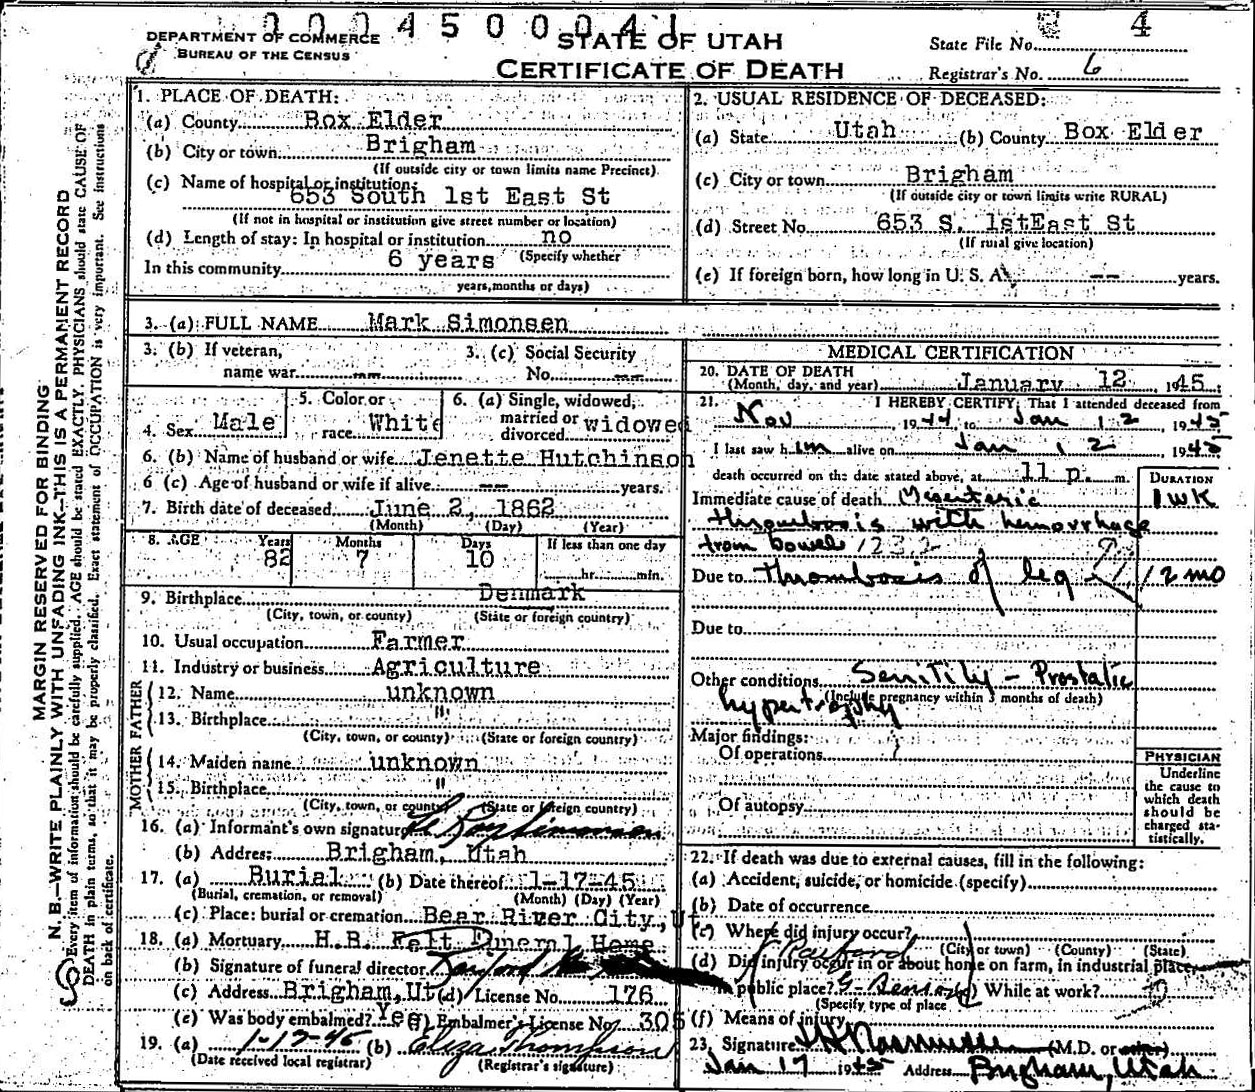 000450004 1
4
DEPARTMENT OF COMMERCE
BUREAU OF THE CENSUS
STATE OF UTAH
CERTIFICATE OF DEATH
State File No.
Registrar's No. 6
MARGIN RESERVED FOR BINDING
N. B.—WRITE PLAINLY WITH UNFADING INK—THIS IS A PERMANENT RECORD
Every item of information should be carefully supplied. AGE should be stated EXACTLY. PHYSICIANS should state CAUSE OF
DEATH in plain terms, so that it may be properly classified. Exact statement of OCCUPATION is very important. See instructions
on back of certificate.
1. PLACE OF DEATH:
(a) County Box Elder
(b) City or town Brigham
(If outside city or town limits name Precinct)
(c) Name of hospital or institution:
653 South 1st East St
(If not in hospital or institution give street number or location)
(d) Length of stay: In hospital or institution no
(Specify whether
In this community 6 years
years, months or days)
2. USUAL RESIDENCE OF DECEASED:
(a) State Utah (b) County Box Elder
(c) City or town Brigham
(If outside city or town limits write RURAL)
(d) Street No. 653 S. 1stEast St
(If rural give location)
(e) If foreign born, how long in U. S. A. -- years.
3. (a) FULL NAME Mark Simonsen
3. (b) If veteran,
name war --
3. (c) Social Security
No. --
4. Sex Male
5. Color or
race White
6. (a) Single, widowed,
married or
divorced widowed
6. (b) Name of husband or wife Jenette Hutchinson
6 (c) Age of husband or wife if alive -- years.
7. Birth date of deceased June 2, 1862
(Month) (Day) (Year)
8. AGE Years Months Days If less than one day
82 7 10 hr. min.
9. Birthplace Denmark
(City, town, or county) (State or foreign country)
10. Usual occupation Farmer
11. Industry or business Agriculture
FATHER
12. Name unknown
13. Birthplace "
(City, town, or county) (State or foreign country)
MOTHER
14. Maiden name unknown
15. Birthplace "
(City, town, or county) (State or foreign country)
16. (a) Informant's own signature Le Roy Simonsen
(b) Address Brigham, Utah
17. (a) Burial (b) Date thereof 1-17-45
(Burial, cremation, or removal) (Month) (Day) (Year)
(c) Place: burial or cremation Bear River City, Ut
18. (a) Mortuary H.B. Felt Funeral Home
(b) Signature of funeral director
(c) Address Brigham, Ut (d) License No. 176
(e) Was body embalmed? Yes (f) Embalmer's License No. 305
19. (a) 1-17-45 (b) Eliza Thompson
(Date received local registrar) (Registrar's signature)
MEDICAL CERTIFICATION
20. DATE OF DEATH
(Month, day, and year) January 12 , 1945
21. I HEREBY CERTIFY, That I attended deceased from
Nov , 1944 to Jan 12 1945
I last saw him alive on Jan 12 1945
death occurred on the date stated above, at 11 p. m.
DURATION
Immediate cause of death Mesenteric 1 WK
thrombosis with hemorrhage
from bowel 1232
Due to thrombosis of leg 2 mo
Due to
Other conditions Senility - Prostatic
(Include pregnancy within 3 months of death)
hypertrophy
Major findings:
Of operations
Of autopsy
PHYSICIAN
Underline
the cause to
which death
should be
charged sta-
tistically.
22. If death was due to external causes, fill in the following:
(a) Accident, suicide, or homicide (specify)
(b) Date of occurrence
(c) Where did injury occur?
(City or town) (County) (State)
(d) Did injury occur in or about home on farm, in industrial place,
in public place? (e) While at work?
(Specify type of place
(f) Means of injury
23. Signature (M.D. or other)
Jan 17 1945 Address Brigham, Utah